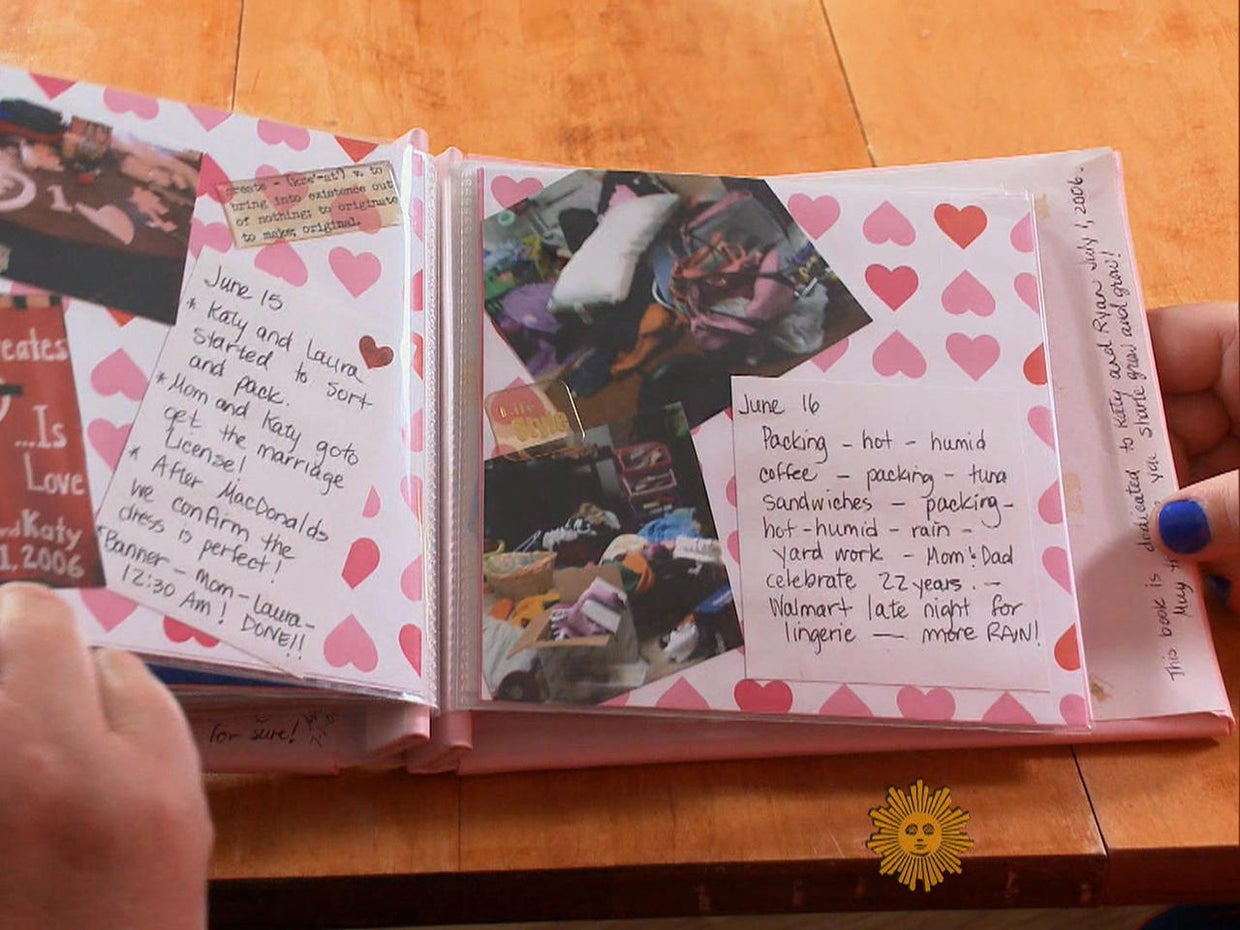 create - (kre'-at') v. to
bring into existence out
of nothing; to originate
to make; original.
June 15
* Katy and Laura
started to sort
and pack.
* Mom and Katy goto
get the marriage
License!
* After MacDonalds
we confirm the
dress is perfect!
*Banner - Mom - Laura -
12:30 Am! DONE!!
eates
...Is
Love
and Katy
1, 2006
for sure!
June 16
Packing - hot - humid
coffee - packing - tuna
sandwiches - packing -
hot - humid - rain -
yard work - Mom & Dad
celebrate 22 years. -
Walmart late night for
lingerie - more RAIN!
This book is dedicated to Katy and Ryan July 1, 2006.
May you share grow and grow!